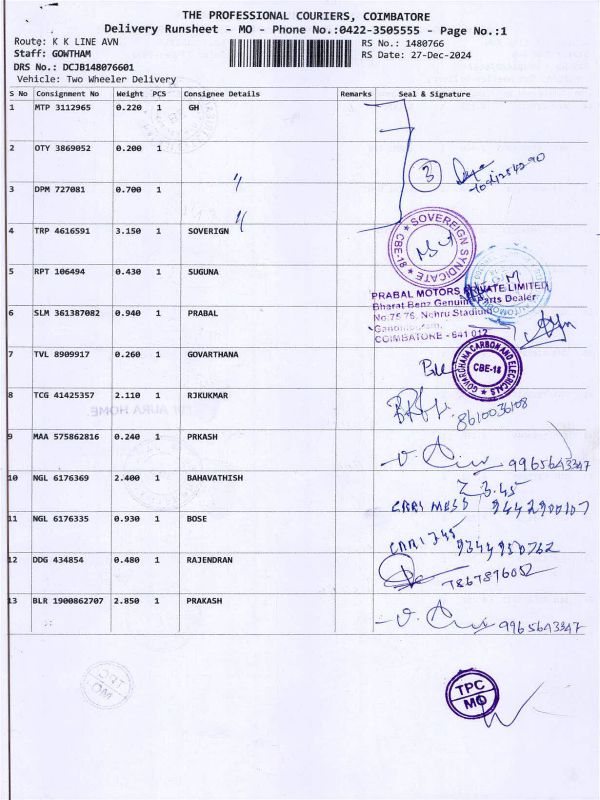 THE PROFESSIONAL COURIERS, COIMBATORE
Delivery Runsheet - MO - Phone No.:0422-3505555 - Page No.:1
Route: K K LINE AVN RS No.: 1480766
Staff: GOWTHAM RS Date: 27-Dec-2024
DRS No.: DCJB148076601
Vehicle: Two Wheeler Delivery
S No Consignment No Weight PCS Consignee Details Remarks Seal & Signature
1 MTP 3112965 0.220 1 GH
2 OTY 3869052 0.200 1
3
3 DPM 727081 0.700 1 "
"
4 TRP 4616591 3.150 1 SOVERIGN
SOVEREIGN SYNDICATE
CBE-18
5 RPT 106494 0.430 1 SUGUNA
PRABAL MOTORS PRIVATE LIMITED
Bharat Benz Genuine Parts Dealer
6 SLM 361387082 0.940 1 PRABAL
No:75 76, Nehru Stadium
COIMBATORE - 641 012
7 TVL 8909917 0.260 1 GOVARTHANA
GOVARDHANA CARBON AND ELECRICALS
CBE-18
8 TCG 41425357 2.110 1 RJKUMAR
8610036108
9 MAA 575862816 0.240 1 PRKASH
9965643347
10 NGL 6176369 2.400 1 BAHAVATHISH
3.45
9442900107
11 NGL 6176335 0.930 1 BOSE
9344950762
12 DDG 434854 0.480 1 RAJENDRAN
7867876052
13 BLR 1900862707 2.850 1 PRAKASH
9965643347
TPC
MO